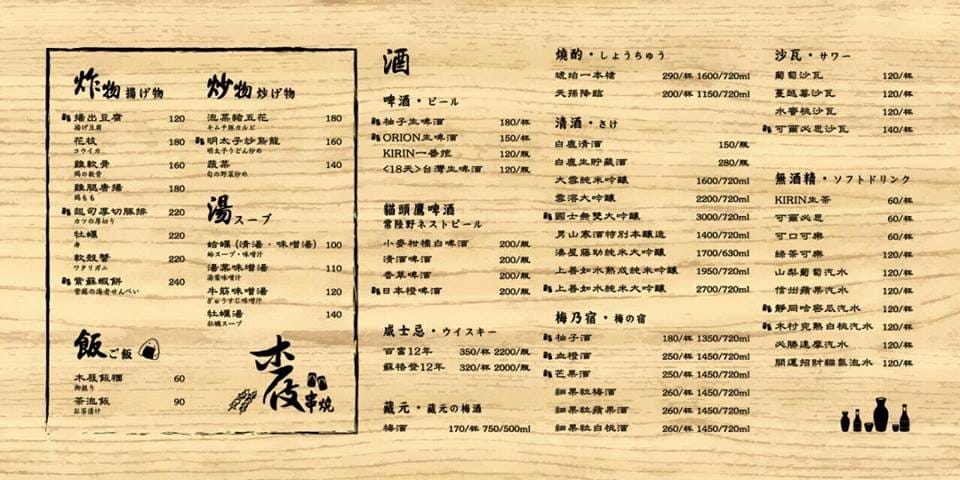 炸物 揚げ物
揚出豆腐 120
揚げ豆腐
花枝 180
コウイカ
雞軟骨 160
鶏の軟骨
雞腿唐揚 180
鶏もも
起司厚切豚排 220
カツの厚切り
牡蠣 220
カ
軟殼蟹 220
ワタリガニ
紫蘇蝦餅 240
紫蘇の海老せんべい
飯 ご飯
木屐飯糰 60
御握り
茶泡飯 90
お茶漬け
炒物 炒げ物
泡菜豬五花 180
キムチ豚カルビ
明太子炒烏龍 160
明太子うどん炒め
蔬菜 140
旬の野菜炒め
湯 スープ
蛤蠣(清湯・味噌湯) 100
蛤スープ・味噌汁
湯葉味噌湯 110
湯葉味噌汁
牛筋味噌湯 120
ぎゅうすじ味噌汁
牡蠣湯 140
牡蠣スープ
木屐 串燒
酒
啤酒・ビール
柚子生啤酒 180/杯
ORION生啤酒 150/杯
KIRIN一番搾 120/瓶
<18天>台灣生啤酒 120/瓶
貓頭鷹啤酒
常陸野ネストビール
小麥柑橘白啤酒 200/瓶
清酒啤酒 200/瓶
香草啤酒 200/瓶
日本橙啤酒 200/瓶
威士忌・ウイスキー
百富12年 350/杯 2200/瓶
蘇格登12年 320/杯 2000/瓶
藏元・蔵元の梅酒
梅酒 170/杯 750/500ml
燒酌・しょうちゅう
琥珀一本槍 290/杯 1600/720ml
天孫降臨 200/杯 1150/720ml
清酒・さけ
白鹿清酒 150/瓶
白鹿生貯藏酒 280/瓶
大雪純米吟釀 1600/720ml
雪溶大吟釀 2200/720ml
國士無雙大吟釀 3000/720ml
男山寒酒特別本釀造 1400/720ml
湊屋藤助純米大吟釀 1700/630ml
上善如水熟成純米吟釀 1950/720ml
上善如水純米大吟釀 2700/720ml
梅乃宿・梅の宿
柚子酒 180/杯 1350/720ml
血橙酒 250/杯 1450/720ml
芒果酒 250/杯 1450/720ml
細果粒梅酒 260/杯 1450/720ml
細果粒蘋果酒 260/杯 1450/720ml
細果粒白桃酒 260/杯 1450/720ml
沙瓦・サワー
葡萄沙瓦 120/杯
蔓越莓沙瓦 120/杯
水蜜桃沙瓦 120/杯
可爾必思沙瓦 140/杯
無酒精・ソフトドリンク
KIRIN生茶 60/杯
可爾必思 60/杯
可口可樂 60/杯
綠茶可樂 120/杯
山梨葡萄汽水 120/杯
信州蘋果汽水 120/杯
靜岡哈密瓜汽水 120/杯
木村完熟白桃汽水 120/杯
必勝達摩汽水 120/杯
開運招財貓氣泡水 120/杯